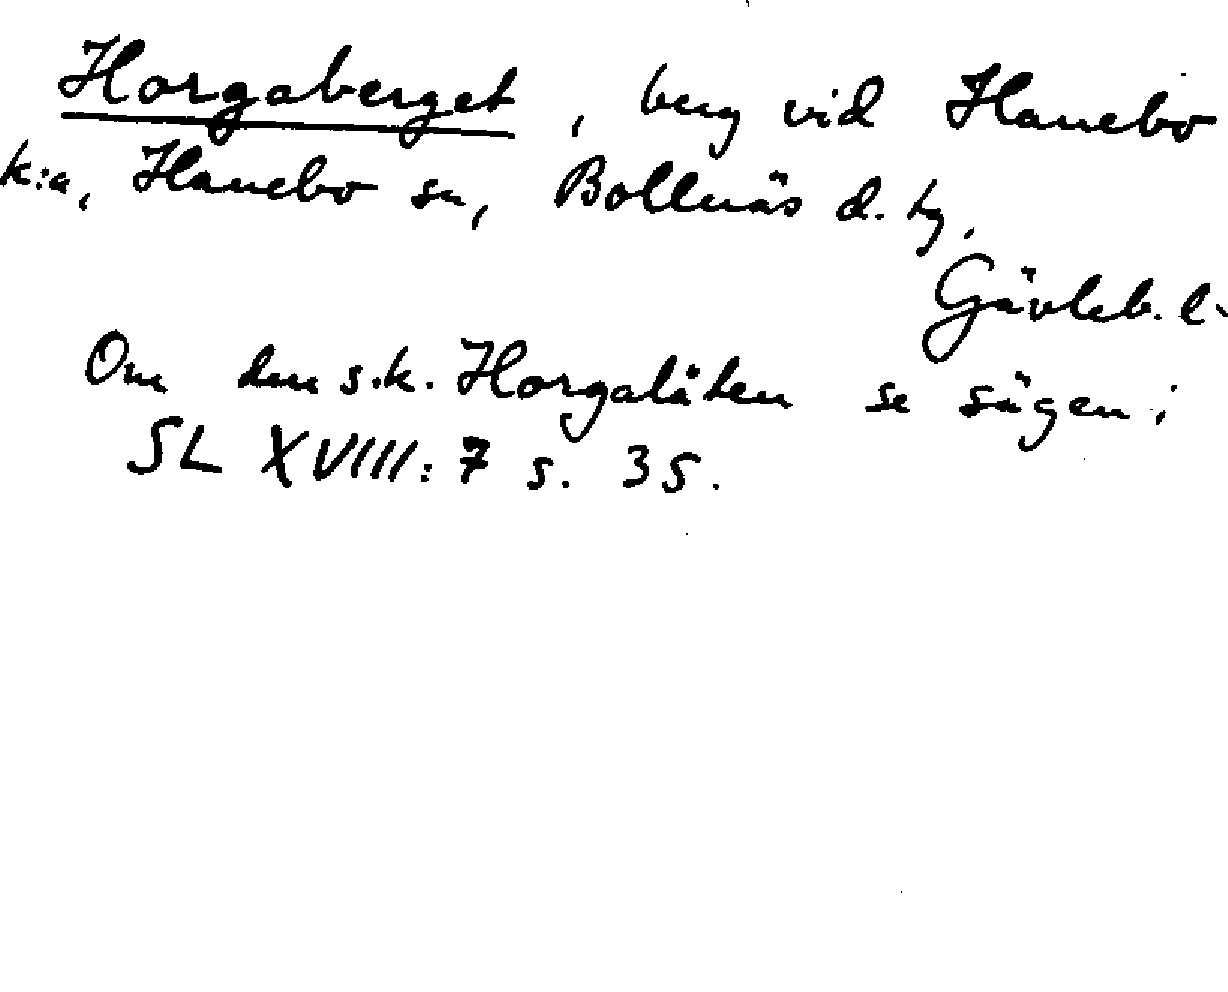 Horgaberget, berg vid Hanebo
k:a, Hanebo sn, Bollnäs d. tg.
Gävleb. l.
Om den s.k. Horgalåten se sägen i
SL XVIII: 7 s. 35.